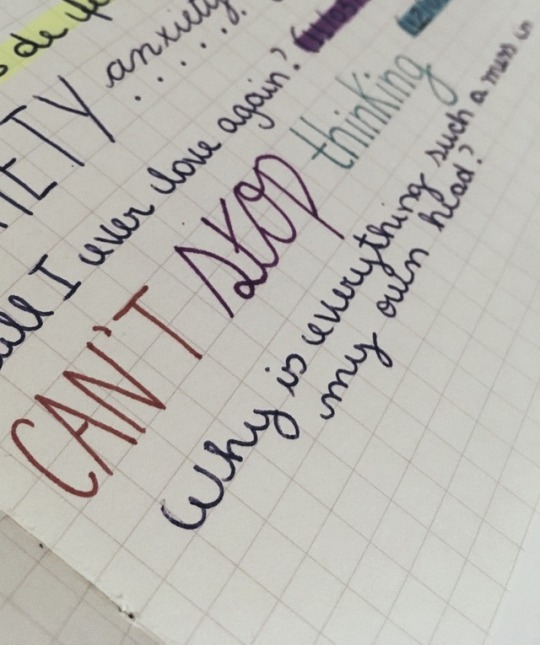 de
IETY anxiety
ill I ever love again?
CAN'T STOP thinking
Why is everything such a mess in
my own head?